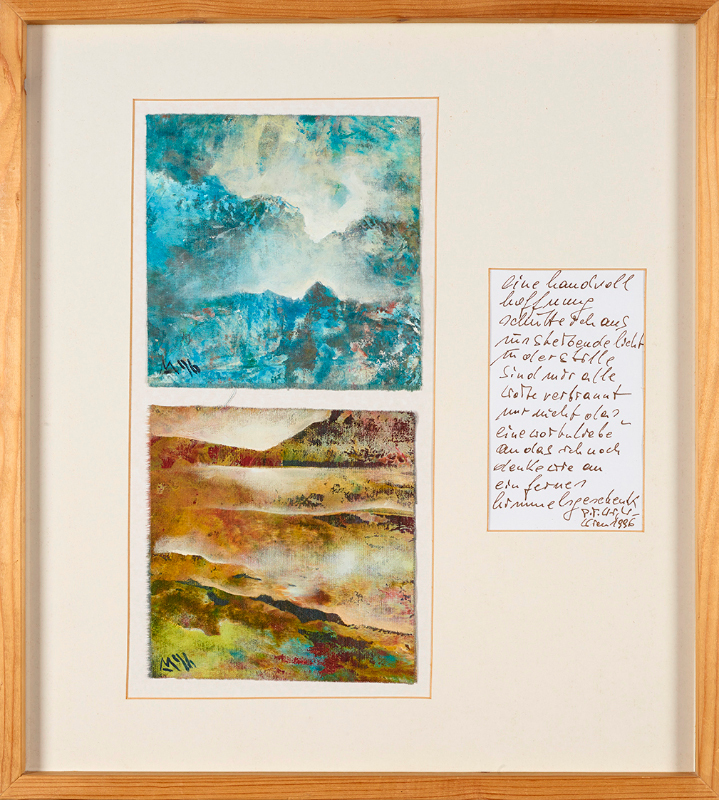 eine handvoll
hoffnung
schütte ich aus
ins sterbende licht
in der stille
sind mir alle
worte verbrannt
nur nicht das
eine wort liebe
an das ich noch
denke wie an
ein fernes
himmelsgeschenk
Wien 1996